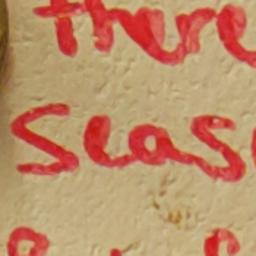 there
Seas